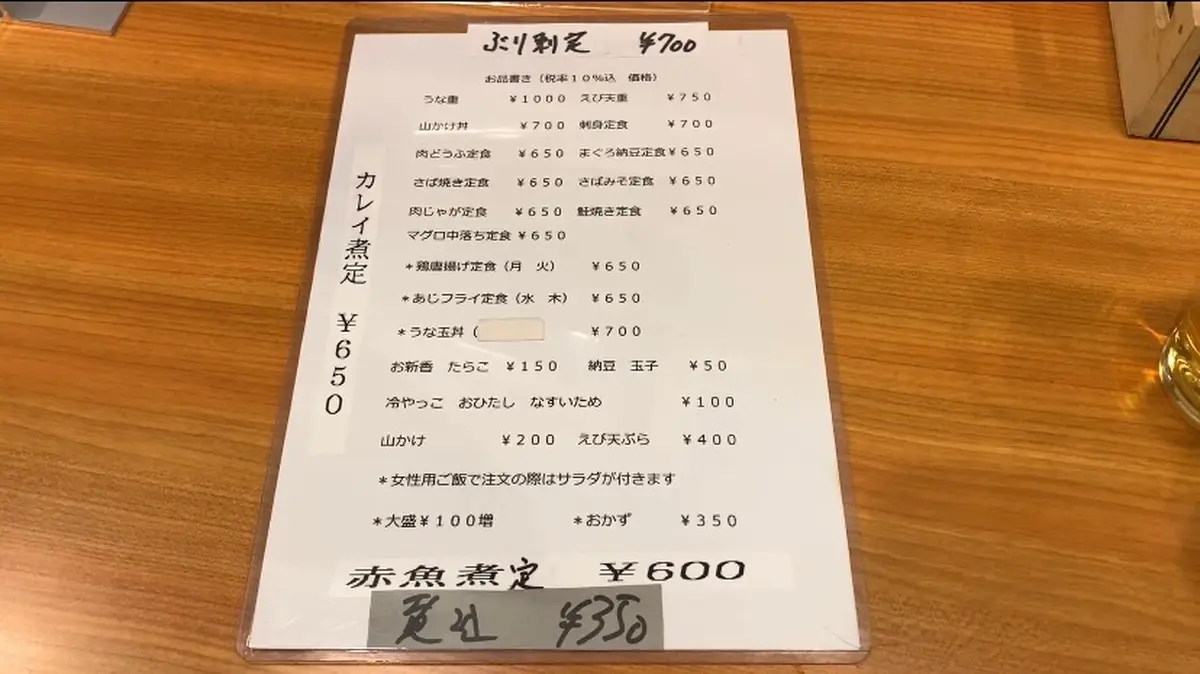 ぶり刺定 ¥700
お品書き（税率１０％込 価格）
うな重 ¥１０００ えび天重 ¥７５０
山かけ丼 ¥７００ 刺身定食 ¥７００
肉どうふ定食 ¥６５０ まぐろ納豆定食¥６５０
さば焼き定食 ¥６５０ さばみそ定食 ¥６５０
肉じゃが定食 ¥６５０ 鮭焼き定食 ¥６５０
マグロ中落ち定食 ¥６５０
＊鶏唐揚げ定食（月 火） ¥６５０
＊あじフライ定食（水 木） ¥６５０
＊うな玉丼（ ¥７００
お新香 たらこ ¥１５０ 納豆 玉子 ¥５０
冷やっこ おひたし なすいため ¥１００
山かけ ¥２００ えび天ぷら ¥４００
＊女性用ご飯で注文の際はサラダが付きます
＊大盛¥１００増 ＊おかず ¥３５０
カレイ煮定 ¥６５０
赤魚煮定 ¥６００
¥350